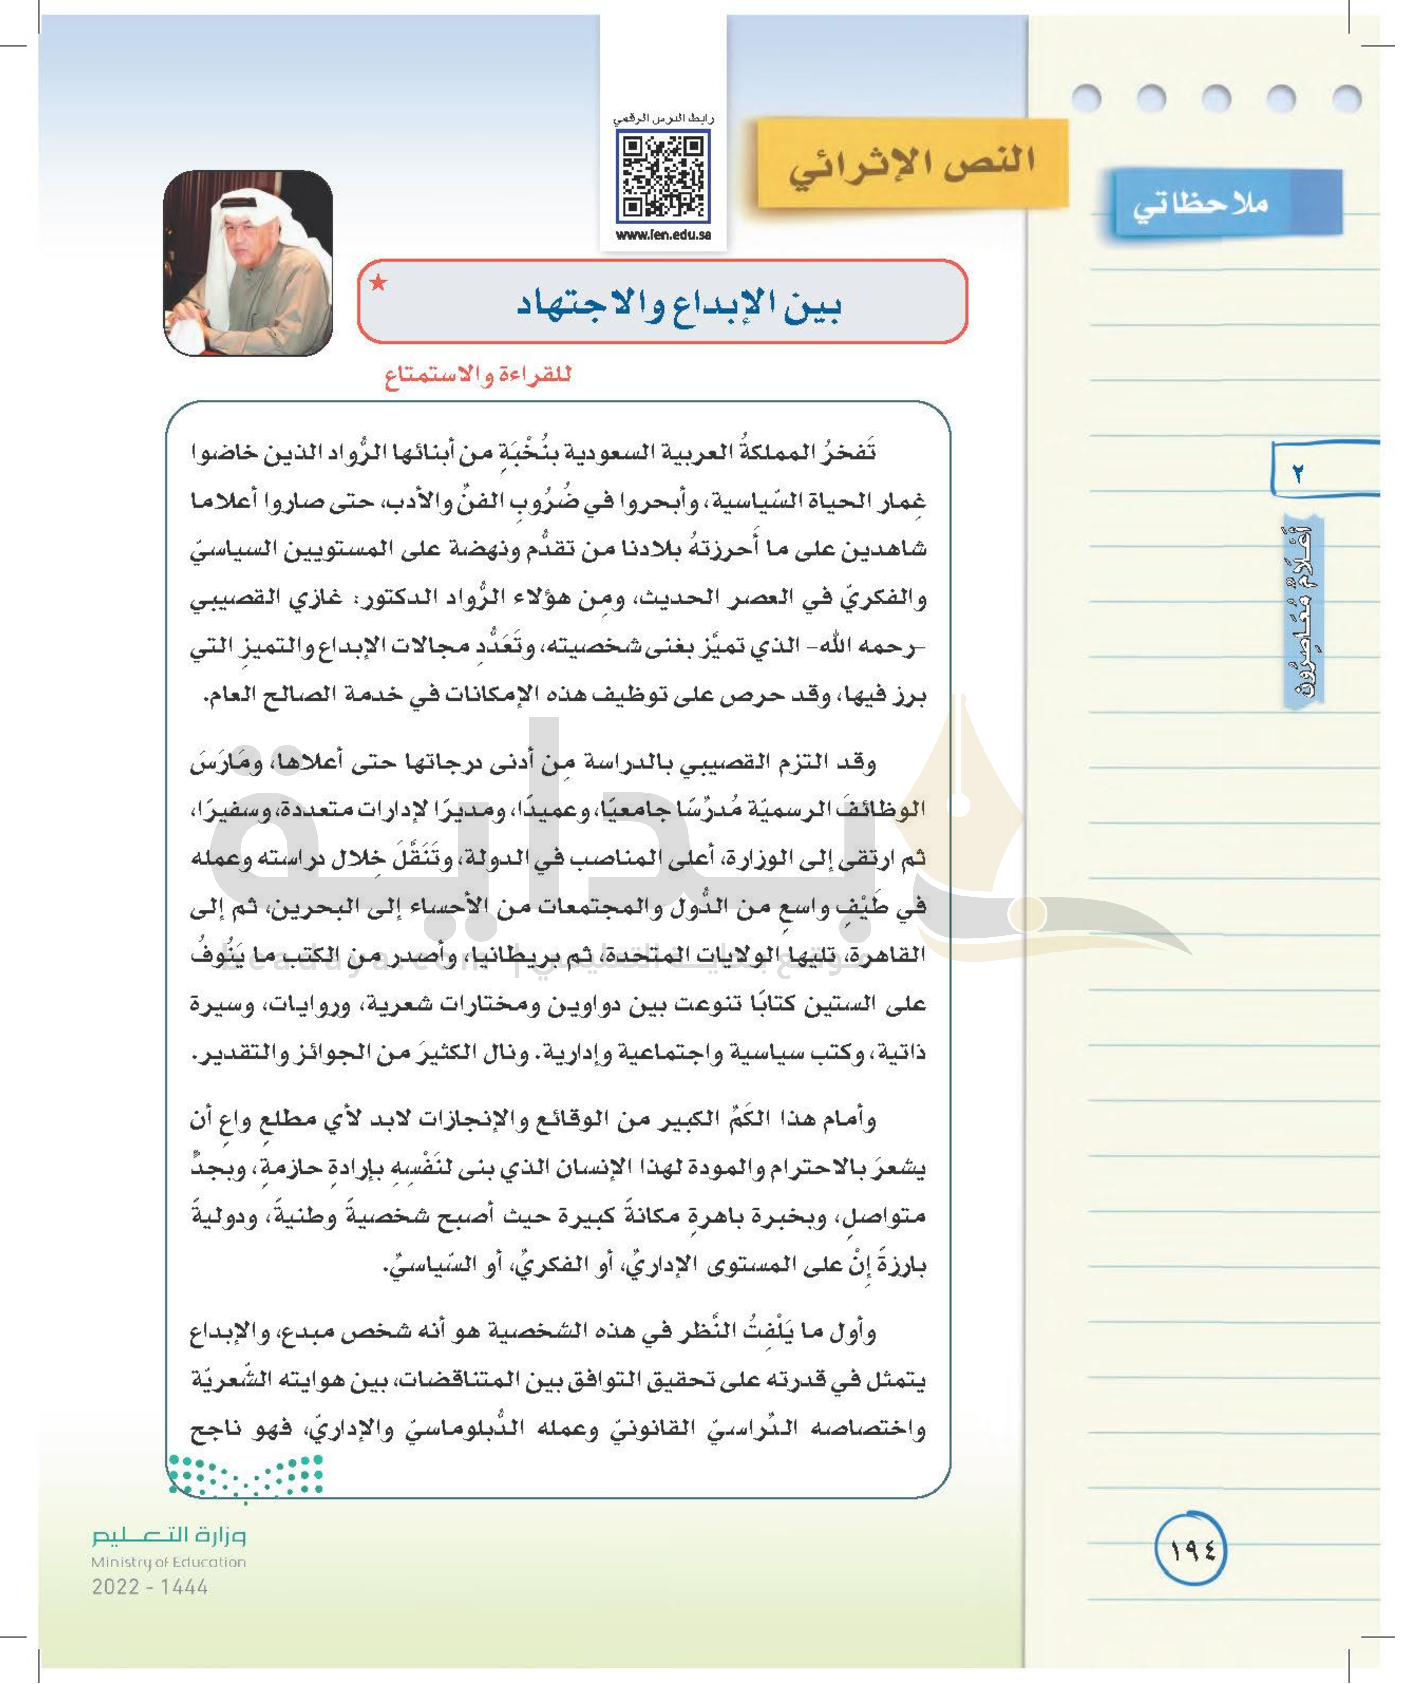 رابط الدرس الرقمي
www.ien.edu.sa
النص الإثرائي
ملاحظاتي
بين الإبداع والاجتهاد
للقراءة والاستمتاع
تَفخرُ المملكةُ العربية السعودية بنُخْبَةٍ من أبنائها الرُّواد الذين خاضوا
غِمار الحياة السّياسية، وأبحروا في ضُرُوبِ الفنِّ والأدب، حتى صاروا أعلاما
شاهدين على ما أَحرزتهُ بلادنا من تقدُّم ونهضة على المستويين السياسيّ
والفكريّ في العصر الحديث، ومِن هؤلاء الرُّواد الدكتور: غازي القصيبي
-رحمه الله- الذي تميَّز بغنى شخصيته، وتَعَدُّدِ مجالات الإبداع والتميز التي
برز فيها، وقد حرص على توظيف هذه الإمكانات في خدمة الصالح العام.
وقد التزم القصيبي بالدراسة مِن أدنى درجاتها حتى أعلاها، ومَارَسَ
الوظائفَ الرسميّة مُدرِّسًا جامعيًا، وعميدًا، ومديرًا لإدارات متعددة، وسفيرًا،
ثم ارتقى إلى الوزارة، أعلى المناصب في الدولة، وتَنَقَّلَ خِلال دراسته وعمله
في طَيْفٍ واسعٍ من الدُّول والمجتمعات من الأحساء إلى البحرين، ثم إلى
القاهرة، تليها الولايات المتحدة، ثم بريطانيا، وأصدر من الكتب ما يَنُوفُ
على الستين كتابًا تنوعت بين دواوين ومختارات شعرية، وروايات، وسيرة
ذاتية، وكتب سياسية واجتماعية وإدارية. ونال الكثيرَ من الجوائز والتقدير.
وأمام هذا الكَمِّ الكبير من الوقائع والإنجازات لابد لأي مطلعٍ واعٍ أن
يشعرَ بالاحترام والمودة لهذا الإنسان الذي بنى لنَفْسِهِ بإرادةٍ حازمةٍ، وبَجدٍّ
متواصلٍ، وبخبرة باهرةٍ مكانةً كبيرة حيث أصبح شخصيةً وطنيةً، ودوليةً
بارزةً إنْ على المستوى الإداريِّ، أو الفكريِّ، أو السّياسيِّ.
وأول ما يَلْفِتُ النَّظر في هذه الشخصية هو أنه شخص مبدع، والإبداع
يتمثل في قدرته على تحقيق التوافق بين المتناقضات، بين هوايته الشّعريّة
واختصاصه الدِّراسيّ القانونيّ وعمله الدُّبلوماسيّ والإداريّ، فهو ناجح
بداية
موقع بداية التعليمي | beadaya.com
٢
أَعْلَامٌ مُعَاصِرُون
١٩٤
وزارة التعليم
Ministry of Education
2022 - 1444